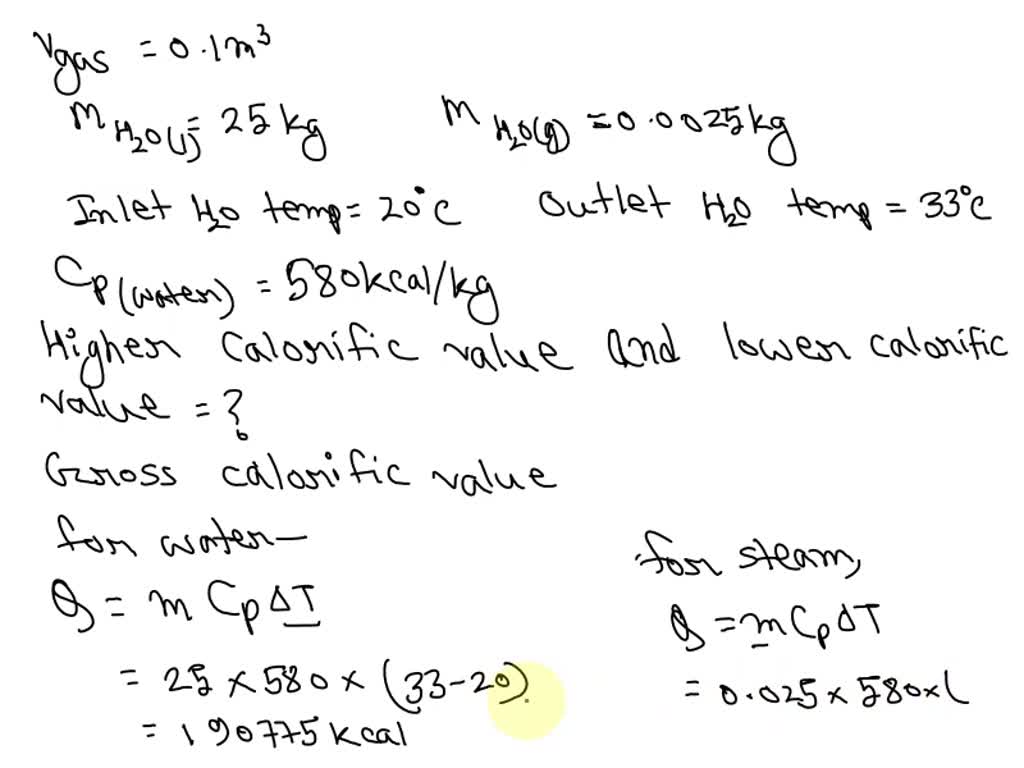 Vgas = 0.1m³
m H₂O(l) = 25 kg    m H₂O(g) = 0.0025kg
Inlet H₂O temp = 20°C    Outlet H₂O temp = 33°C
Cp (water) = 580kcal/kg
Higher Calorific value and lower calorific
value = ?
Gross calorific value
for water—
Q = m Cp ΔT
= 25 × 580 × (33-20)
= 190775 kcal
for steam,
Q = m Cp ΔT
= 0.025 × 580 × (